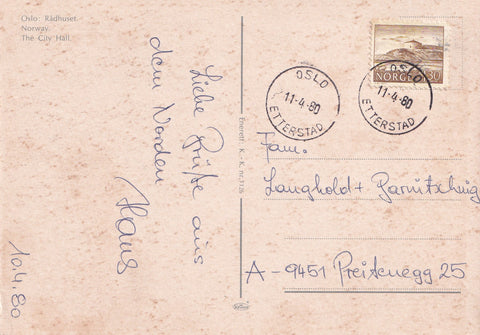 Oslo: Rådhuset.
Norway.
The City Hall.
Liebe Grüße aus
dem Norden
Hans
10.4.80
Enerett: K.-K. nr. 3126
NORGE 130
OSLO
11-4-80
ETTERSTAD
OSLO
11-4-80
ETTERSTAD
Fam.
Langhold +
A-9451 Preitenegg 25